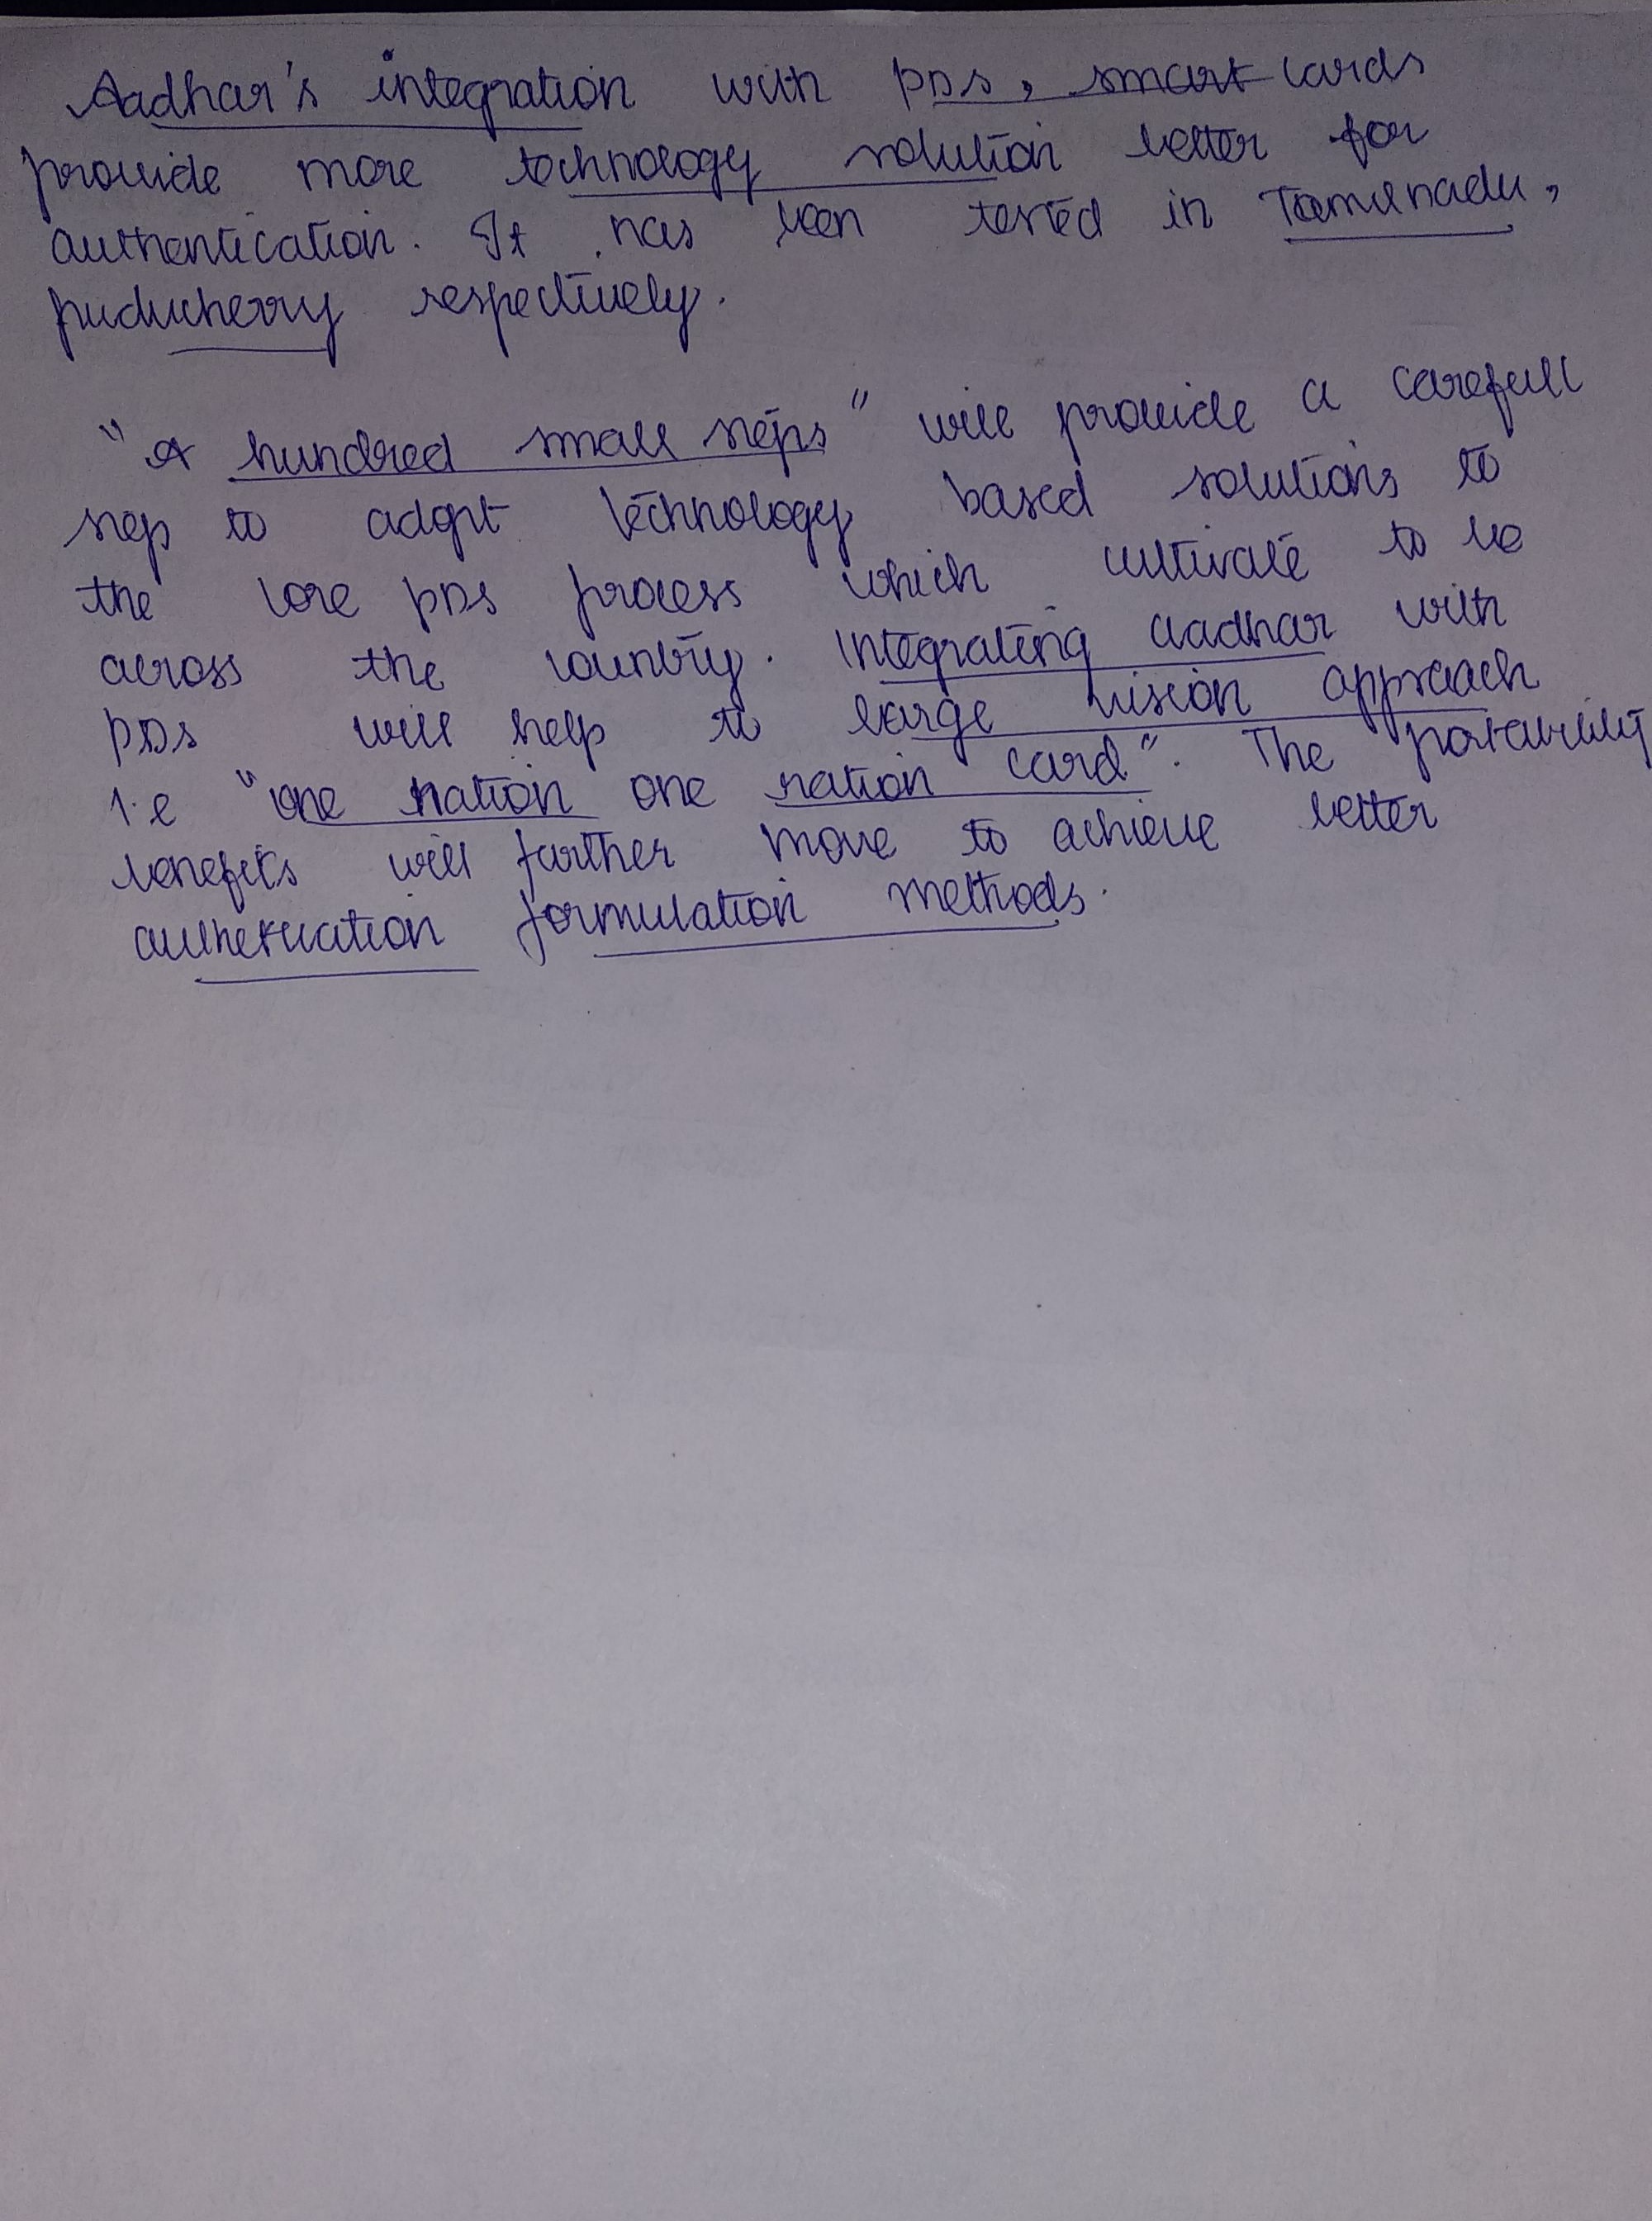 Aadhar's integration with PDS, smart cards
provide more technology solution better for
authentication. It has been tested in Tamilnadu,
puducherry respectively.
"A hundred small steps" will provide a carefull
step to adopt technology based solutions to
the core PDS process which cultivate to be
across the country. Integrating aadhar with
PDS will help to large vision approach
i.e "one nation one nation card". The portability
benefits will further move to achieve better
authentication formulation methods.